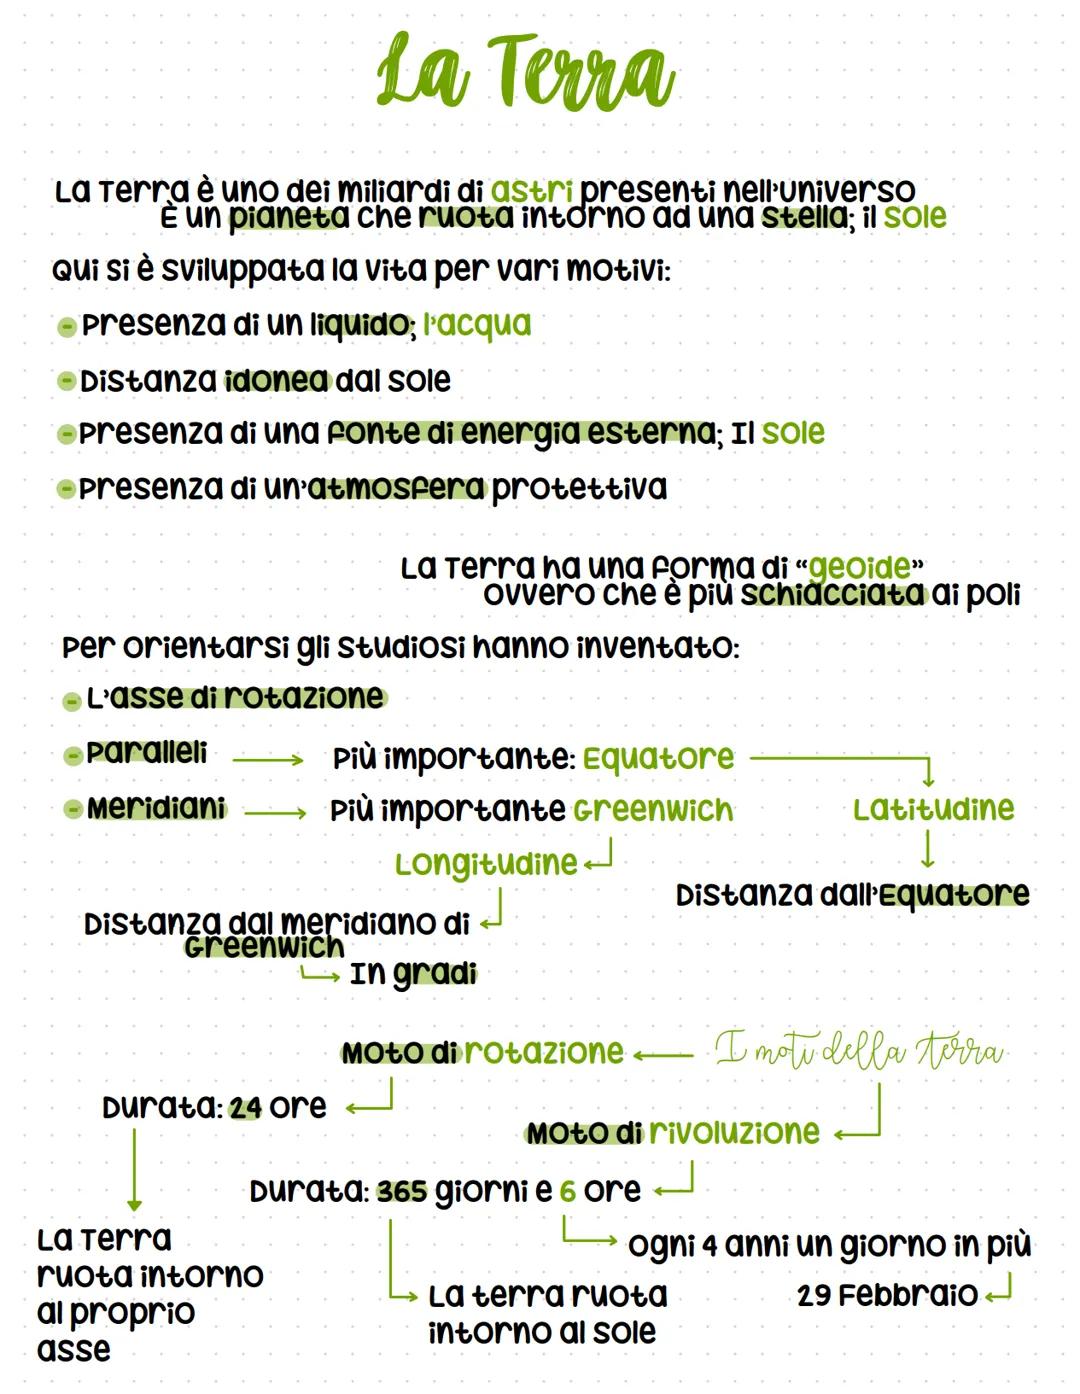 La Terra
La Terra è uno dei miliardi di astri presenti nell'universo
È un pianeta che ruota intorno ad una stella; il sole
Qui si è sviluppata la vita per vari motivi:
- Presenza di un liquido; l'acqua
- Distanza idonea dal sole
- Presenza di una fonte di energia esterna; Il sole
- Presenza di un'atmosfera protettiva
La Terra ha una forma di “geoide”
ovvero che è più schiacciata ai poli
Per orientarsi gli studiosi hanno inventato:
- L'asse di rotazione
- Paralleli → Più importante: Equatore
- Meridiani → Più importante Greenwich
Latitudine
Longitudine
Distanza dall'Equatore
Distanza dal meridiano di
Greenwich
In gradi
I moti della terra
Moto di rotazione
Durata: 24 ore
Moto di rivoluzione
Durata: 365 giorni e 6 ore
La Terra
ruota intorno
al proprio
asse
ogni 4 anni un giorno in più
29 Febbraio
La terra ruota
intorno al sole